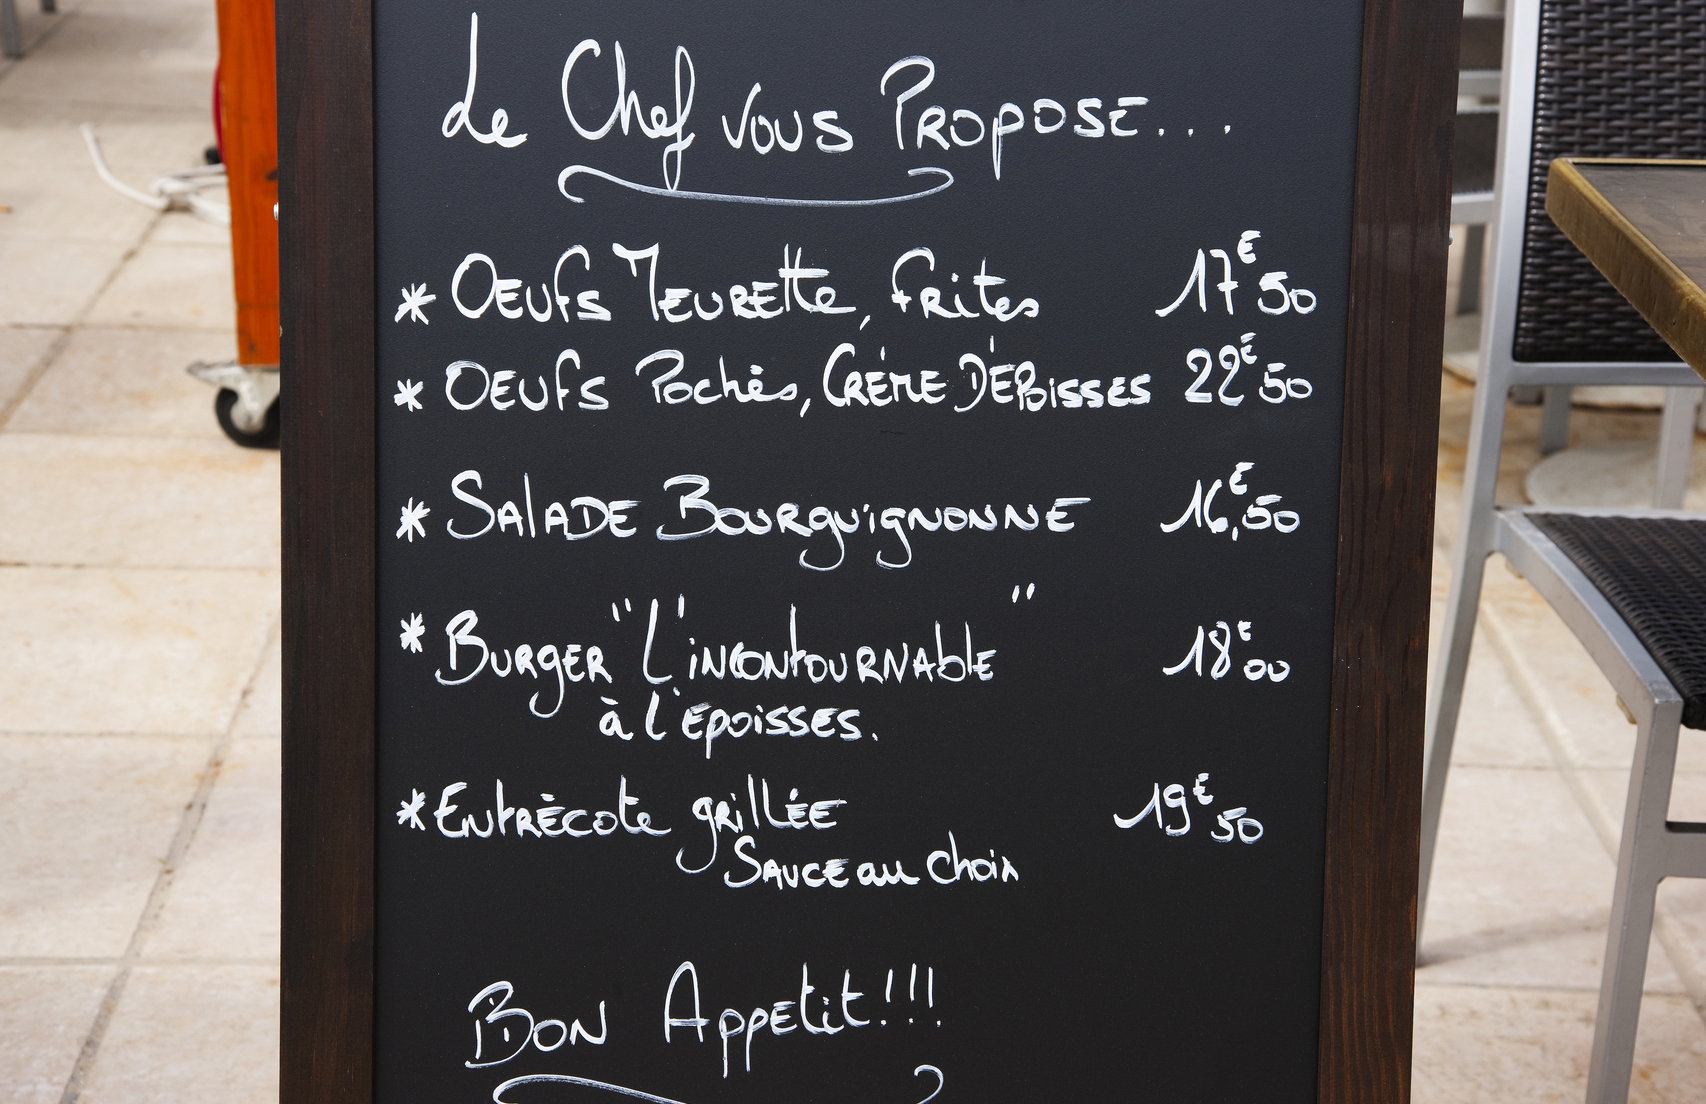 Le Chef vous Propose...
* Oeufs Meurette, frites 17€50
* Oeufs Pochés, Crème D'Epoisses 22€50
* Salade Bourguignonne 16€,50
* Burger "L'incontournable" 18€00
à l'époisses.
* Entrècote grillée 19€50
Sauce au choix
Bon Appetit!!!